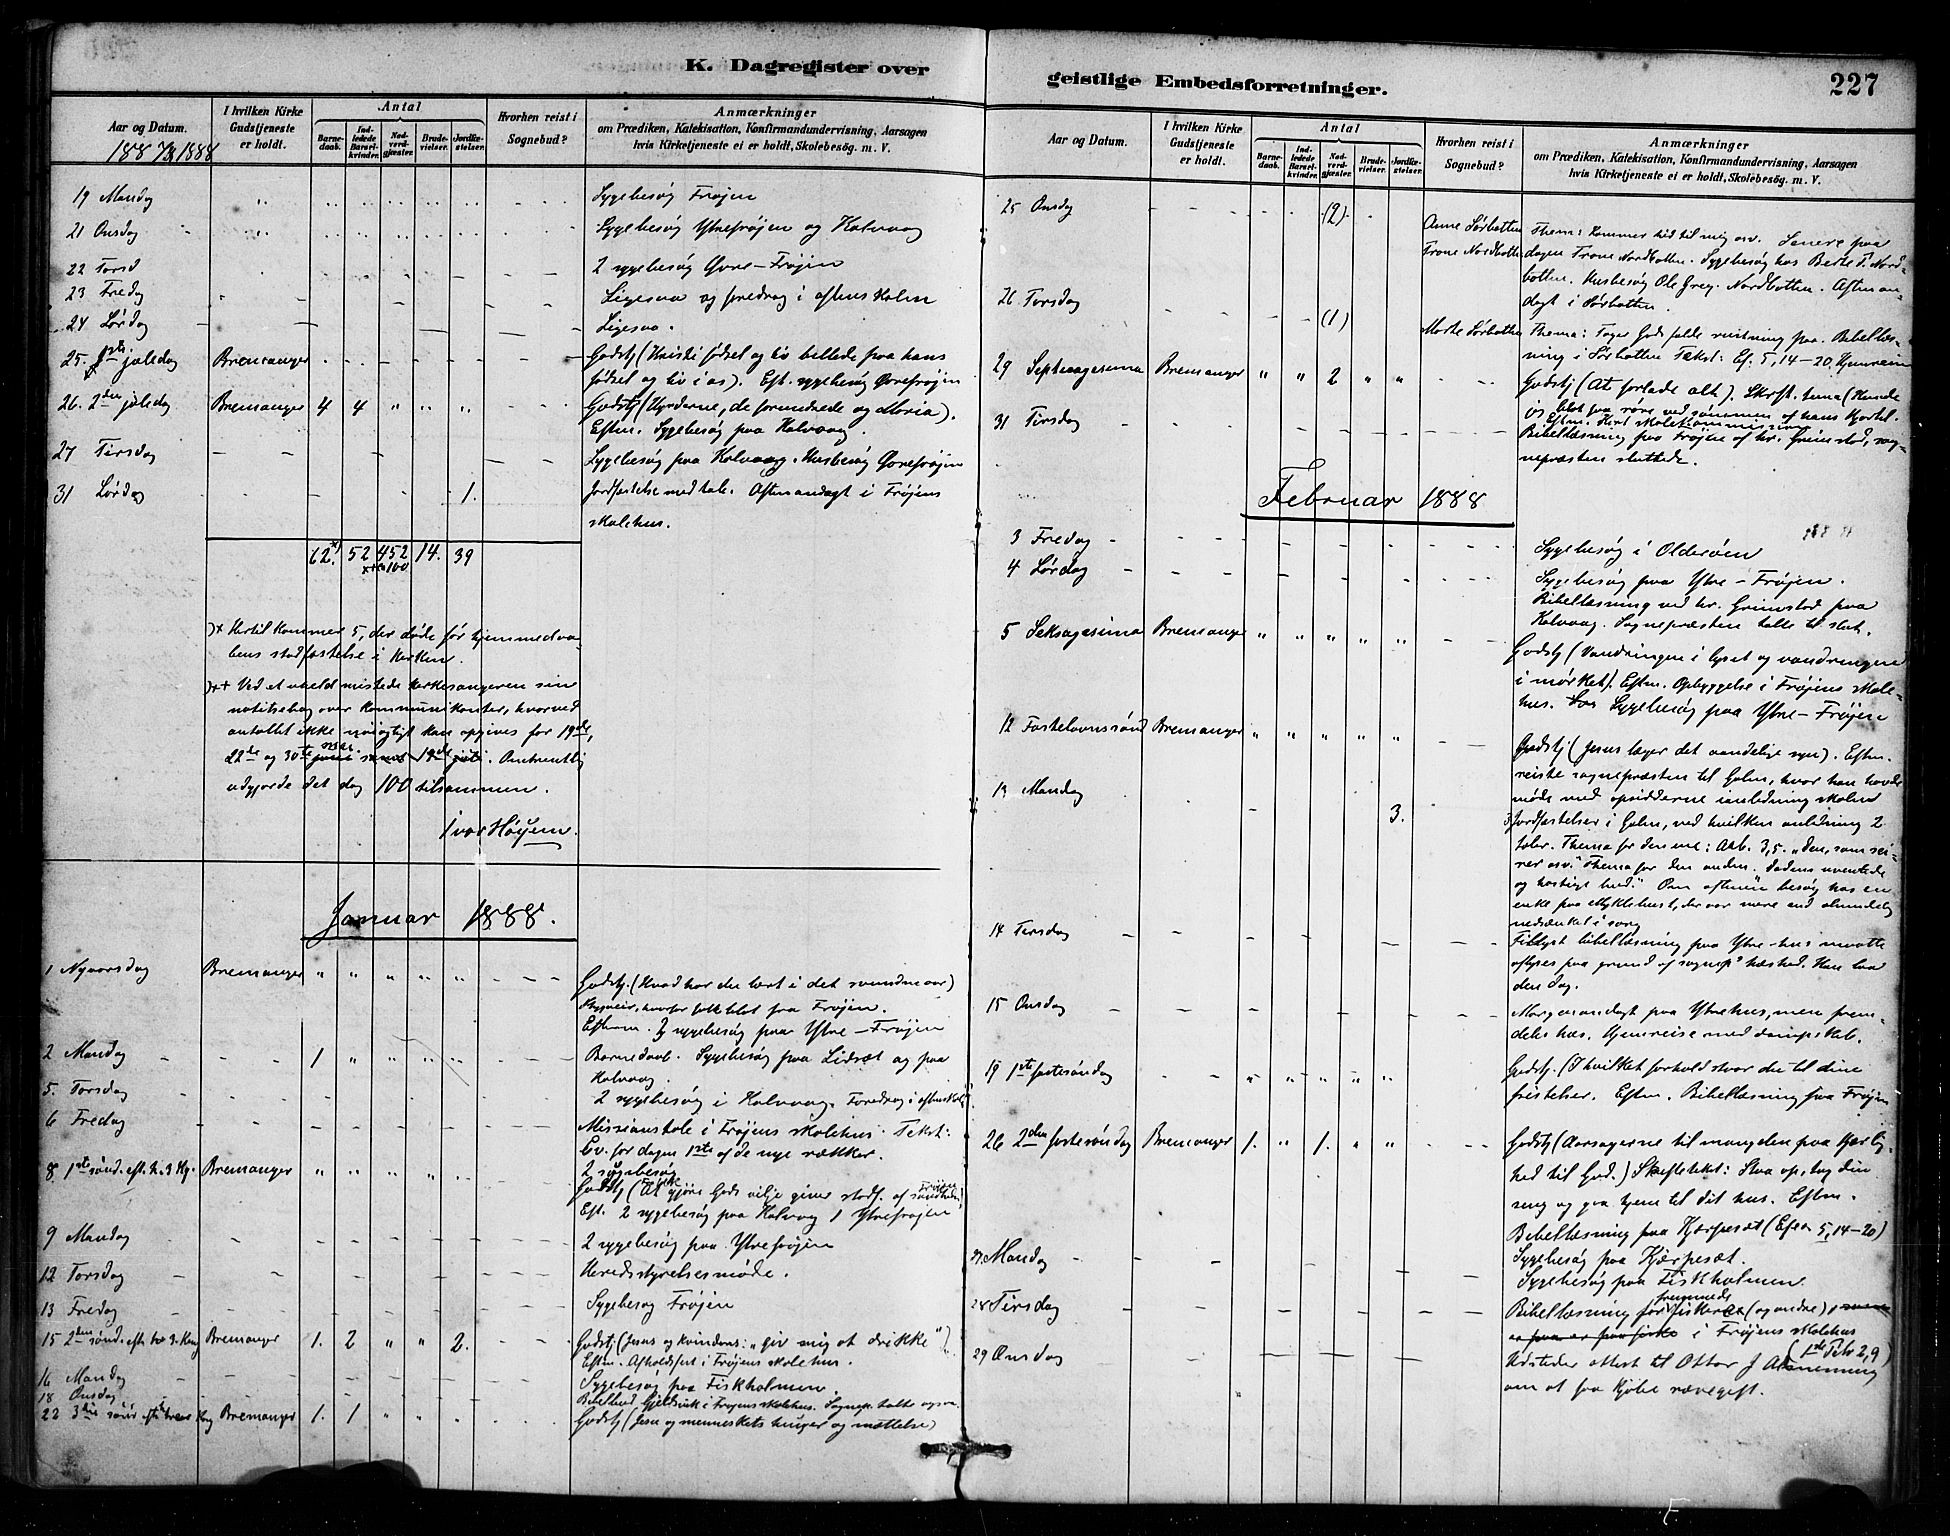 K. Dagregister over
Aar og Datum.
1887/1888
I hvilken Kirke Gudstjeneste er holdt.
Antal
Barne-daab.
Ind-ledede Barsel-kvinder.
Nad-verd-gjæster.
Brude-vielser.
Jordfæ-stelser.
Hvorhen reist i Sognebud?
Anmærkninger
om Prædiken, Katekisation, Konfirmandundervisning, Aarsagen
hvis Kirketjeneste ei er holdt, Skolebesøg. m. V.
19 Mandag Sygebesøg Frøjen
21 Onsdag Sygebesøg Ytrefrøjen og Kalvaag
22 Torsd 2 sygebesøg Øvre-Frøjen
23 Fredag Ligesaa og foredrag i aftenskolen
24 Lørdag Ligesaa.
25. 1ste juledag Bremanger Gudstj (Kristi fødsel og liv billede paa hans
fødsel og liv i os). Eft. sygebesøg Øvrefrøjen
26. 2den juledag Bremanger 4 4 " " " Gudstj (Hyrderne, de forundrede og Maria).
Eftm. Sygebesøg paa Kalvaag.
27 Tirsdag Sygebesøg paa Kalvaag. Husbesøg Øvrefrøjen
31 Lørdag 1. Jordfæstelse med tale. Aftenandagt i Frøjens
skolehus.
62. x) 52 452 14. 39
x+ ca 100
)x Hertil kommer 5, der døde før hjemmedaa-
bens stadfæstelse i kirken.
)x+ Ved et uheld mistede kirkesangeren sin
notitsebog over kommunikanter, hvorved
antallet ikke nøiagtigt kan opgives for 19de,
22de og 30te samt 19de. Omtrentlig
udgjorde det dog 100 tilsammen.
Ivar Høyem.
Januar 1888.
1 Nyaarsdag Bremanger " " " " " Gudstj. (Hvad har du lært i det svundne aar)
Styggveir, hvorfor folk blot fra Frøjen.
Efterm. 3 sygebesøg paa Ytre-Frøjen
2 Mandag 1 " " " " Barnedaab. Sygebesøg paa Lidsæt og paa
Kalvaag.
5. Torsdag 2 sygebesøg i Kalvaag. Foredrag i aftenskol.
6 Fredag Missionstale i Frøjens skolehus. Tekst:
Ev. for dagen 1ste af de nye rækker.
2 sygebesøg
8 1ste sønd. eft. h. 3 Kg. Bremanger " " " " " Gudstj (At gjøre Guds vilje giver stadf. af sandheden)
Eft. 2 sygebesøg paa Kalvaag 1 Ytrefrøjen
9 Mandag 2 sygebesøg paa Ytrefrøjen
12 Torsdag Heredsstyrelsesmøde.
13 Fredag Sygebesøg Frøjen
15 2den sønd. eft. h 3. Kong Bremanger 1. 2 " " 2. Gudstj (Jesus og kvindens: „giv mig at drikke")
Eftm. Afholdsfest i Frøjens skolehus.
16 Mandag Sygebesøg paa Fiskholmen.
18 Onsdag i Frøjens skolehus. Sognep. talte ogsaa
22 3die sønd. eft. Kong Bremanger 1. 1 " " " Gudstj (Jesu og menneskets hunger og mættelse)
geistlige Embedsforretninger.
227
Aar og Datum.
I hvilken Kirke Gudstjeneste er holdt.
Antal
Barne-daab.
Ind-ledede Barsel-kvinder.
Nad-verd-gjæster.
Brude-vielser.
Jordfæ-stelser.
Hvorhen reist i Sognebud?
Anmærkninger
om Prædiken, Katekisation, Konfirmandundervisning, Aarsagen
hvis Kirketjeneste ei er holdt, Skolebesøg. m. V.
25 Onsdag (2) Anne Sørbotten Thema: Kommer hid til mig osv. Senere paa
Trone Nordbotten dagen Trone Nordbotten. Sygebesøg hos Berte T. Nord-
botten. Husbesøg Ole Greg. Nordbotten. Aftenan-
dagt i Sørbotten.
26 Torsdag (1) Marte Sørbotten Thema: Tager Guds fulde rustning paa. Bibellæs-
ning i Sørbotten Tekst: Ef. 5, 14-20. Hjemreise
29 Septuagesima Bremanger " " 2 " " Gudstj (At forlade alt). Skrft. tema (Kunde
jeg blot faa røre ved sømmen af hans Kjortel.
Eftm. Holdt skolekommission
31 Tirsdag Bibellæsning paa Frøjen af hr. Grimstad, sog-
nepræsten sluttede.
Februar 1888
3 Fredag Sygebesøg i Olderøen
4 Lørdag Sygebesøg paa Ytre-Frøjen.
Bibellæsning ved hr. Grimstad paa
Kalvaag. Sognepræsten talte til slut.
5 Seksagesima Bremanger " " " " " Gudstj (Vandringen i lyset og vandringen
i mørket). Eftm. Opbyggelse i Frøjens skole-
hus. Sygebesøg paa Ytre-Frøjen
12 Fastelavnssønd Bremanger " " " " " Gudstj (Jesus læger det aandelige syn). Eftm.
reiste sognepræsten til Galen, hvor han havde
møde med opsidderne i anledning skolen
13 Mandag 3. 3 Jordfæstelser i Galen, ved hvilken anledning 2
taler. Thema for den ene: Aab. 3,5. „Den, som sei-
rer osv." Thema for den anden. Dødens uventede
og hastige bud." Om aftenen besøg hos en
enke paa Myklebust, der var mere end almindelig
nedsænket i sorg
14 Tirsdag Tillyst bibellæsning paa Ytre-hus maatte
aflyses paa grund af sognep's hæshed. Han laa
den dag.
15 Onsdag Morgenandagt paa Ytrehus, men frem-
deles hæs. Hjemreise med dampskib.
19 1ste fastesøndag " " " " " Gudstj. (I hvilket forhold staar du til dine
fristelser. Eftm. Bibellæsning paa Frøjen
26 2den fastesøndag Bremanger 1. " 1. " " Gudstj (Aarsagerne til mangelen paa kjærlig-
hed til Gud.) Skriftetekst: Staa op, tag din
seng og gaa hjem til dit hus. Eftm.
Bibellæsning paa Kjerpesæt (Efes 5, 14-20)
27. Mandag Sygebesøg paa Kjerpesæt.
Sygebesøg paa Fiskholmen
28 Tirsdag Bibellæsning for fremmede fiskere (og andre)
i Frøjens skolehus
(1ste Petr 2,9)
29 Onsdag Udsteder attest til Ottar J
om at faa kjøbe rævegift.